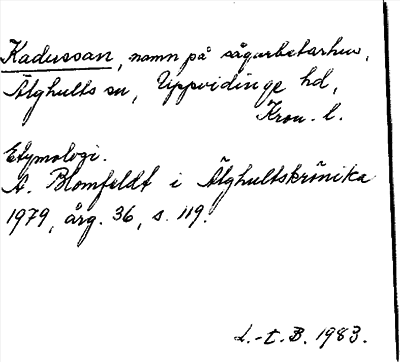 Kadussan, namn på sågarbetarhus,
Älghults sn, Uppvidinge hd,
Kron. l.
Etymologi.
A. Blomfeldt i Älghultskrönika
1979, årg. 36, s. 119.
L.-t. B. 1983.